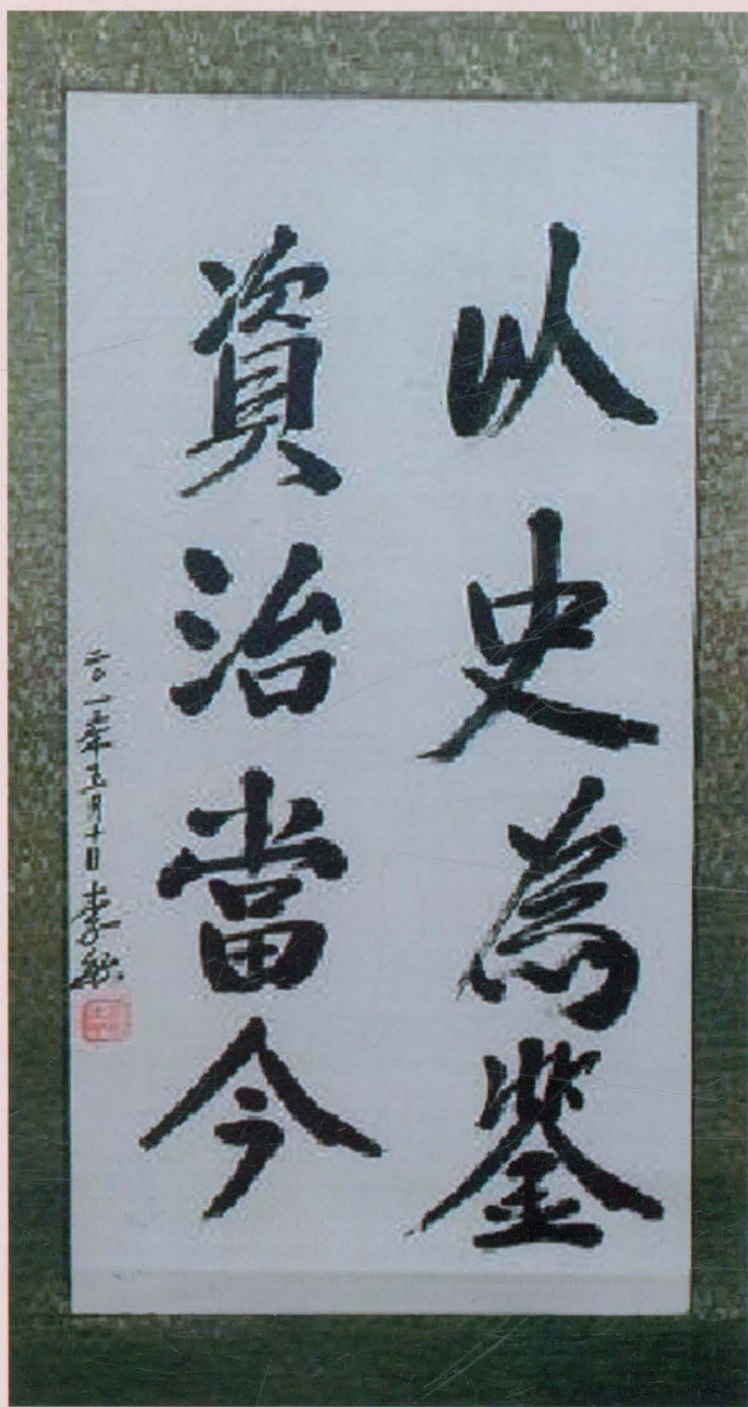 以史為鑒
資治當今
二〇一三年三月十日 李